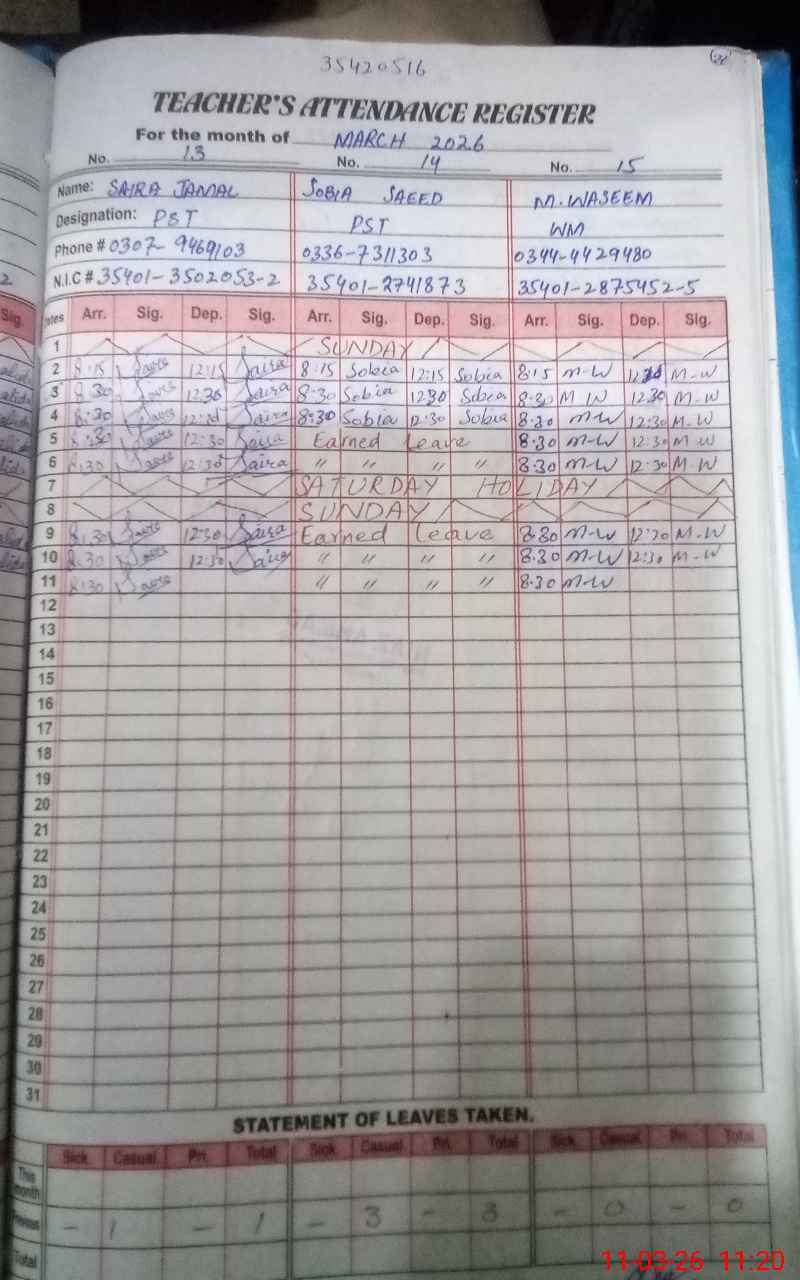 35420516
TEACHER'S ATTENDANCE REGISTER
For the month of MARCH 2026
No. 13 No. 14 No. 15
Name: SAIRA JAMAL SOBIA SAEED M. WASEEM
Designation: PST PST WM
Phone # 0307-9469103 0336-7311303 0344-4429480
N.I.C # 35401-3502053-2 35401-2741873 35401-2875452-5
Arr. Sig. Dep. Sig. Arr. Sig. Dep. Sig. Arr. Sig. Dep. Sig.
1 SUNDAY
2 8:15 Saira 12:15 Saira 8:15 Sobia 12:15 Sobia 8:15 M-W M-W
3 8:30 Saira 12:30 Saira 8:30 Sobia 12:30 Sobia 8:30 M W 12:30 M-W
4 8:30 Saira Saira 8:30 Sobia 12:30 Sobia 8:30 M-W 12:30 M-W
5 8:30 Saira 12:30 Saira Earned Leave 8:30 M-W 12:30 M-W
6 8:30 Saira 12:30 Saira " " " " 8:30 M-W 12:30 M-W
7 SATURDAY HOLIDAY
8 SUNDAY
9 8:30 Saira 12:30 Saira Earned Leave 8:30 M-W 12:30 M-W
10 8:30 Saira 12:30 Saira " " " " 8:30 M-W 12:30 M-W
11 8:30 Saira " " " " 8:30 M-W
12
13
14
15
16
17
18
19
20
21
22
23
24
25
26
27
28
29
30
31
STATEMENT OF LEAVES TAKEN.
Sick Casual Pri. Total Sick Casual Pri. Total Sick Casual Pri. Total
This month
- 1 - 1 - 3 - 3 - 0 - 0
Total
11-03-26 11:20